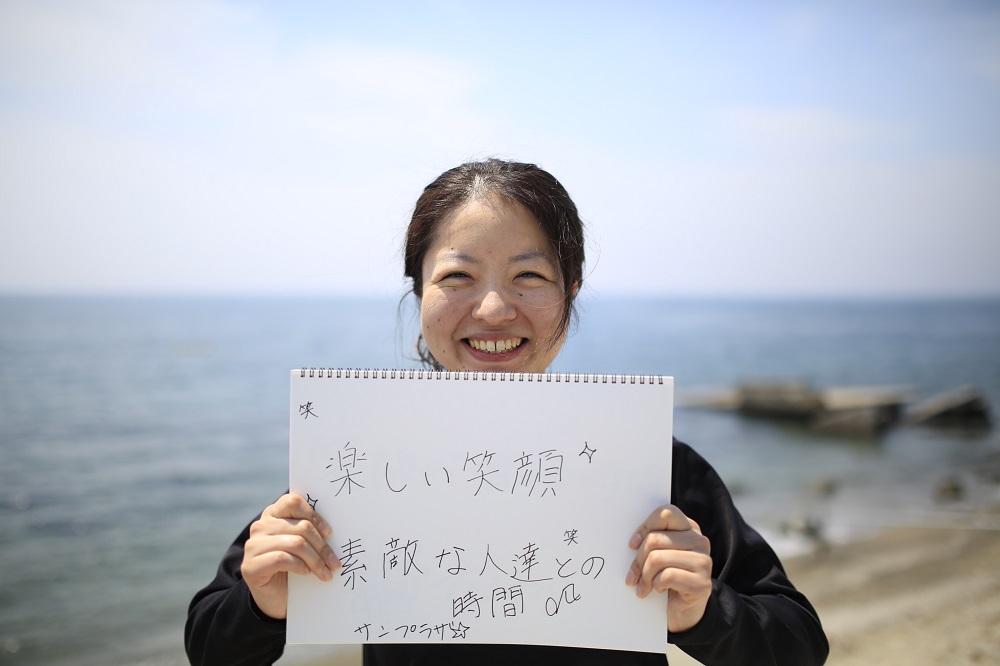 笑
楽しい笑顔
笑
素敵な人達との
時間
サンプラザ